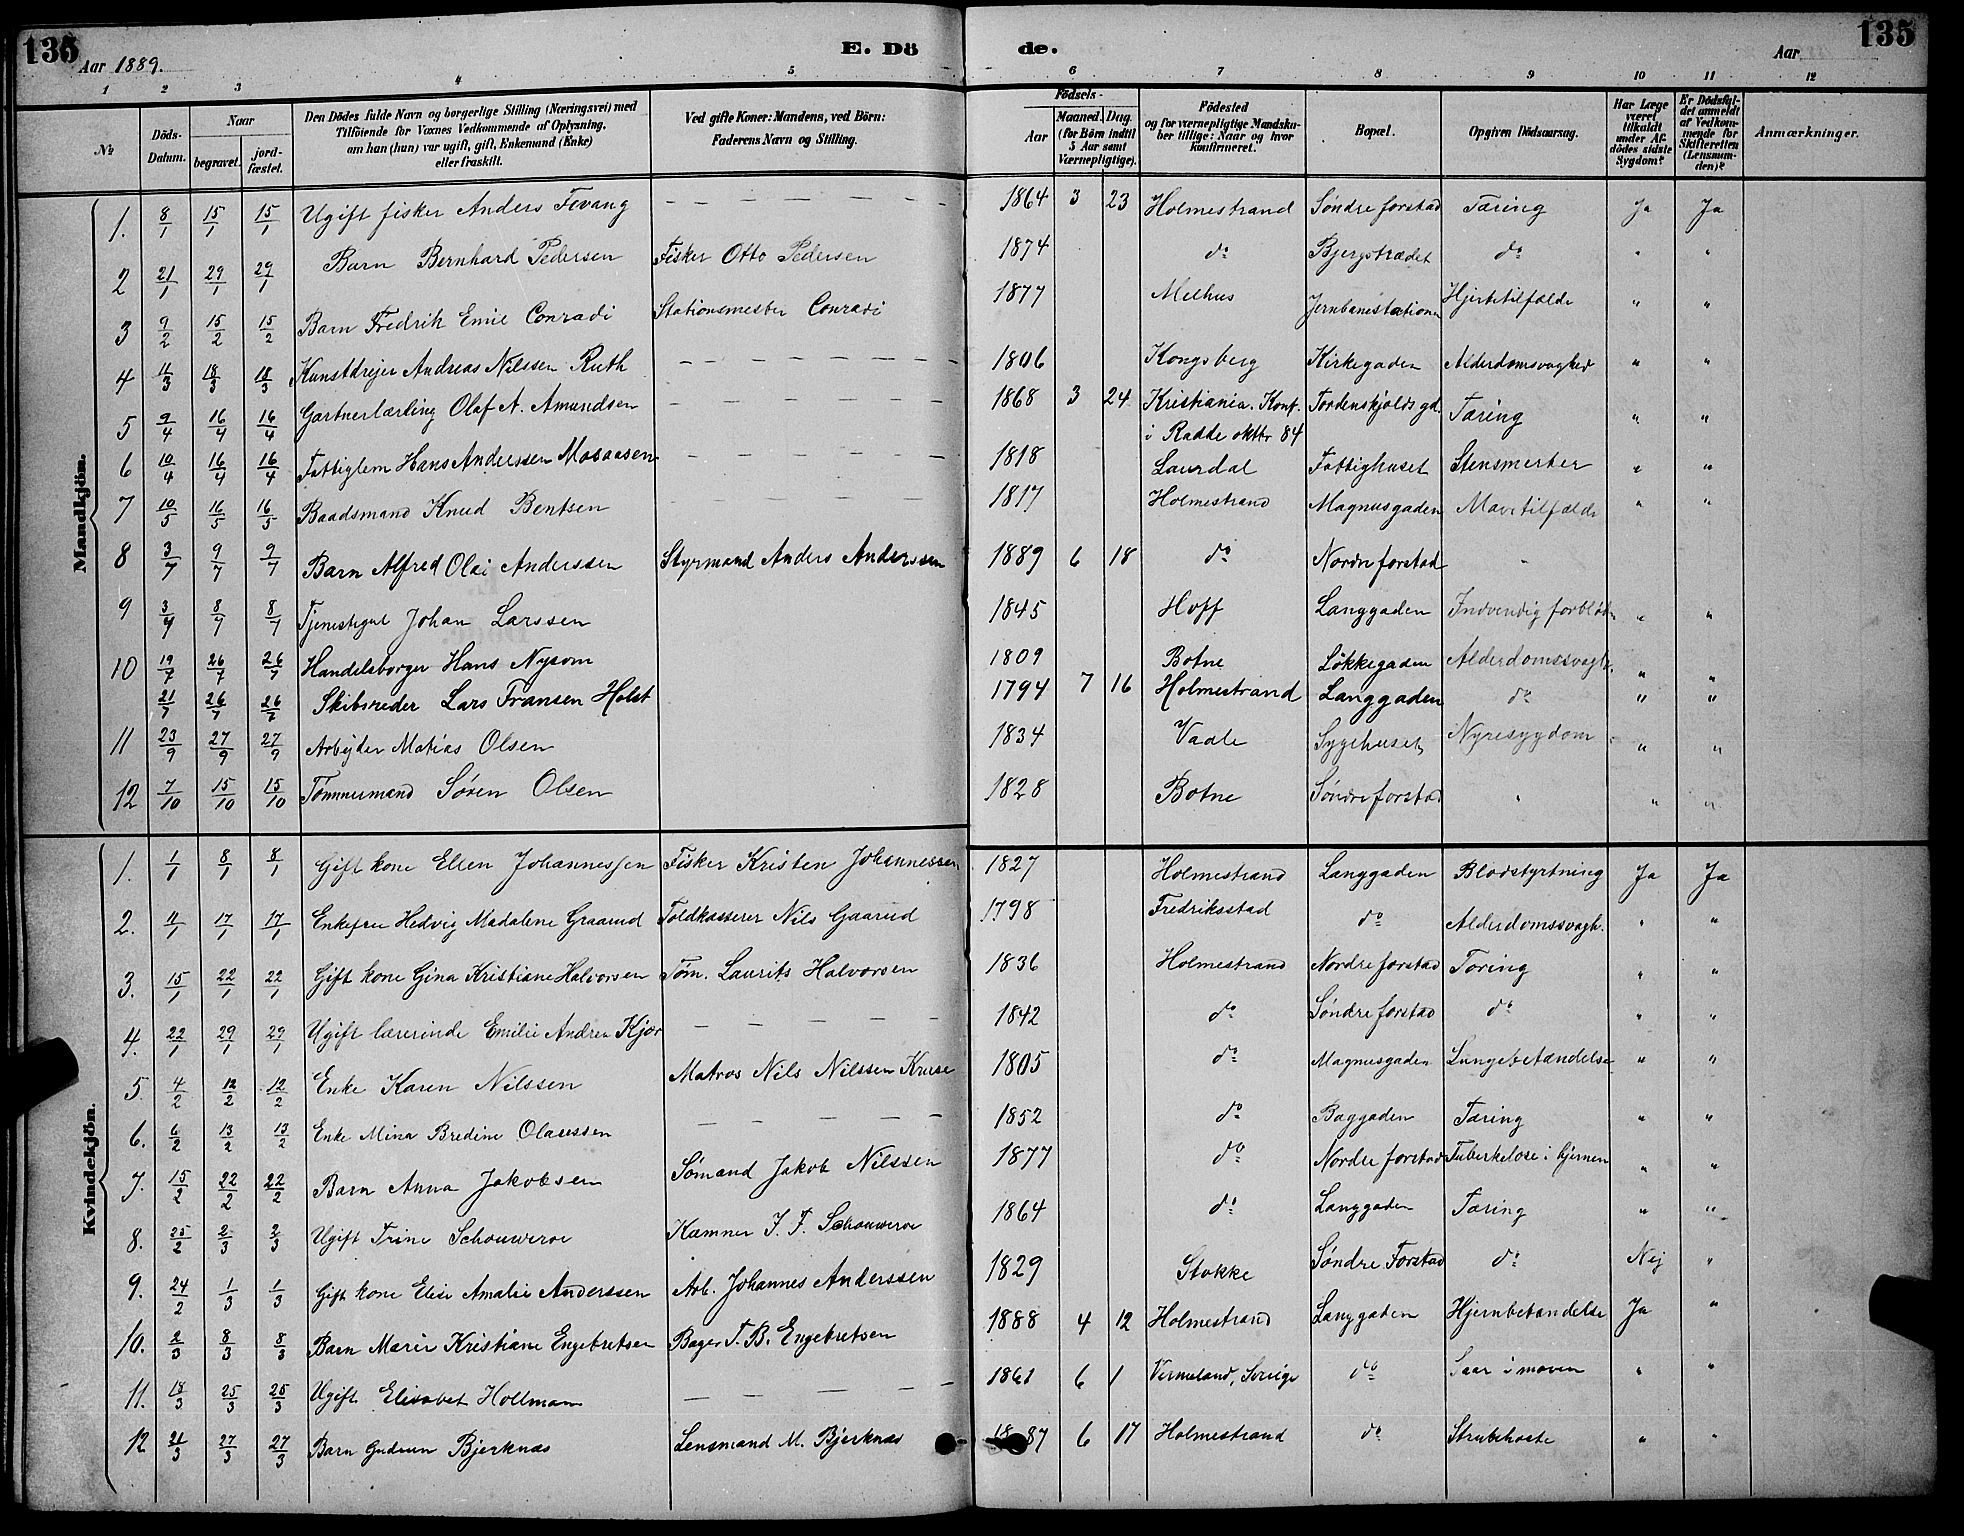 135
Aar 1889.
E. Dö
de.
Aar
135
1 2 3 4 5 6 7 8 9 10 11 12
№
Döds-Datum.
Naar
begravet.
jord-fæstet.
Den Dödes fulde Navn og borgerlige Stilling (Næringsvei) med
Tilföiende for Voxnes Vedkommende af Oplysning,
om han (hun) var ugift, gift, Enkemand (Enke)
eller fraskilt.
Ved gifte Koner: Mandens, ved Börn:
Faderens Navn og Stilling.
Födsels-
Aar
Maaned. Dag.
(for Börn indtil
5 Aar samt
Værnepligtige).
Födested
og for værnepligtige Mandska-
ber tillige: Naar og hvor
konfirmeret.
Bopæl.
Opgiven Dödsaarsag.
Har Læge
været
tilkaldt
under Af-
dödes sidste
Sygdom?
Er Dödsfal-
det anmeldt
af Vedkom-
mende for
Skifteretten
(Lensman-
den)?
Anmærkninger.
Mandkjön.
1. 8/1 15/1 15/1 Ugift fisker Anders Fevang — — — — — — 1864 3 23 Holmestrand Søndre forstad Tæring Ja Ja
2 21/1 29/1 29/1 Barn Bernhard Pedersen Fisker Otto Pedersen 1874 do Bjergstrædet do " "
3 9/2 15/2 15/2 Barn Fredrik Emil Conradi Stationsmester Conradi 1877 Melhus Jernbanestationen Hjertetilfælde " "
4 11/3 18/3 18/3 Kunstdrejer Andreas Nilssen Ruth — — — — — — 1806 Kongsberg Kirkegaden Alderdomssvaghed " "
5 9/4 16/4 16/4 Gartnerlærling Olaf A. Amundsen — — — — — — 1868 3 24 Kristiania. Konf. Tordenskjolds gd. Tæring " "
i Raade oktbr 84
6 10/4 16/4 16/4 Fattiglem Hans Anderssen Mosaasen — — — — — — 1818 Laurdal Fattighuset Stensmerter " "
7 10/5 16/5 16/5 Baadsmand Knud Bentsen — — — — — — 1817 Holmestrand Magnusgaden Mavetilfælde " "
8 3/7 9/7 9/7 Barn Alfred Olai Anderssen Styrmand Anders Anderssen 1889 6 18 do Nordre forstad "
9 3/7 8/7 8/7 Tjenestegut Johan Larssen 1845 Hoff Langgaden Indvendig forblødn. " "
10 19/7 26/7 26/7 Handelsborger Hans Nysom 1809 Botne Løkkegaden Alderdomssvagh. " "
21/7 26/7 26/7 Skibsreder Lars Fransen Holst 1794 7 16 Holmestrand Langgaden do " "
11 23/9 27/9 27/9 Arbejder Matias Olsen 1834 Vaale Sygehuset Nyresygdom " "
12 7/10 15/10 15/10 Tømmermand Søren Olsen 1828 Botne Søndre forstad " " "
Kvindekjön.
1. 1/1 8/1 8/1 Gift kone Ellen Johannessen Fisker Kristen Johannessen 1827 Holmestrand Langgaden Blodstyrtning Ja Ja
2. 11/1 17/1 17/1 Enkefru Hedvig Madalene Graarud Toldkasserer Nils Gaarud 1798 Fredriksstad do Alderdomssvagh. " "
3. 15/1 22/1 22/1 Gift kone Gina Kristiane Halvorsen Tøm. Laurits Halvorsen 1836 Holmestrand Nordre forstad Tæring " "
4. 22/1 29/1 29/1 Ugift lærerinde Emilie Andrea Kjær — — — — — 1842 do Søndre forstad do " "
5. 4/2 12/2 12/2 Enke Karen Nilssen Matros Nils Nilssen Kruse 1805 do Magnusgaden Lungebetændelse " "
6. 6/2 13/2 13/2 Enke Mina Bredine Olaussen — — — — — 1852 do Baggaden Tæring " "
7. 15/2 22/2 22/2 Barn Anna Jakobsen Sømand Jakob Nilssen 1877 do Nordre forstad Tuberkelose i hjernen " "
8. 25/2 2/3 2/3 Ugift Trine Schouweroe Kæmner J. F. Schouweroe 1864 do Langgaden Tæring " "
9. 24/2 1/3 1/3 Gift kone Elise Amalie Anderssen Arb. Johannes Anderssen 1829 Stokke Søndre Forstad do Nej "
10. 2/3 8/3 8/3 Barn Marie Kristiane Engebretsen Bager T. B. Engebretsen 1888 4 12 Holmestrand Langgaden Hjernebetændelse Ja "
11. 18/3 25/3 25/3 Ugift Elisabet Hollman — — — — — 1861 6 1 Vermeland, Sverige do Saar i maven " "
12 21/3 27/3 27/3 Barn Gudrun Bjerknæs Lensmand M. Bjerknæs 1887 6 17 Holmestrand do Strubehoste " "